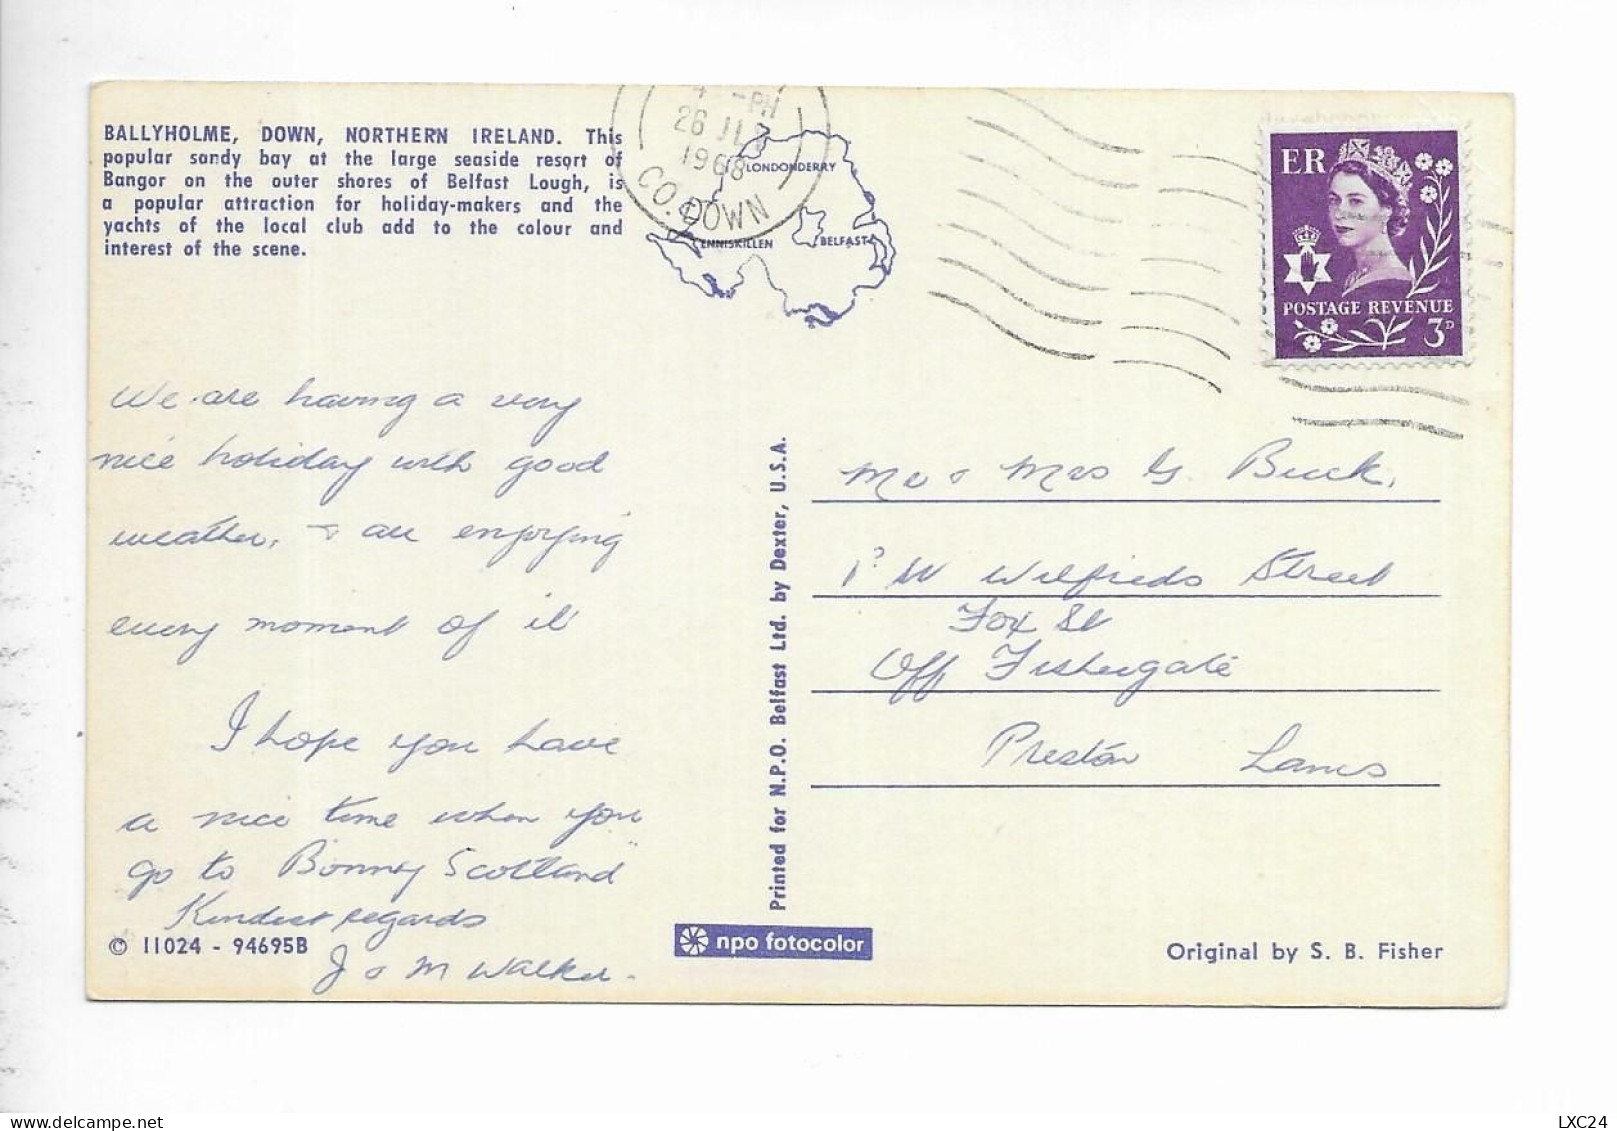 BALLYHOLME, DOWN, NORTHERN IRELAND. This
popular sandy bay at the large seaside resort of
Bangor on the outer shores of Belfast Lough, is
a popular attraction for holiday-makers and the
yachts of the local club add to the colour and
interest of the scene.
-PM
26 JLY
1968
CO. DOWN
LONDONDERRY
ENNISKILLEN
BELFAST
ER
POSTAGE REVENUE
3D
We are having a very
nice holiday with good
weather, & are enjoying
every moment of it
I hope you have
a nice time when you
go to "Bonny Scotland"
Kindest regards
J & M Walker.
© 11024 - 94695B
Printed for N.P.O. Belfast Ltd. by Dexter, U.S.A.
npo fotocolor
Mr & Mrs G. Buck,
Wilfreds Street
Fox St
Off Fishergate
Preston Lancs
Original by S. B. Fisher
LXC24